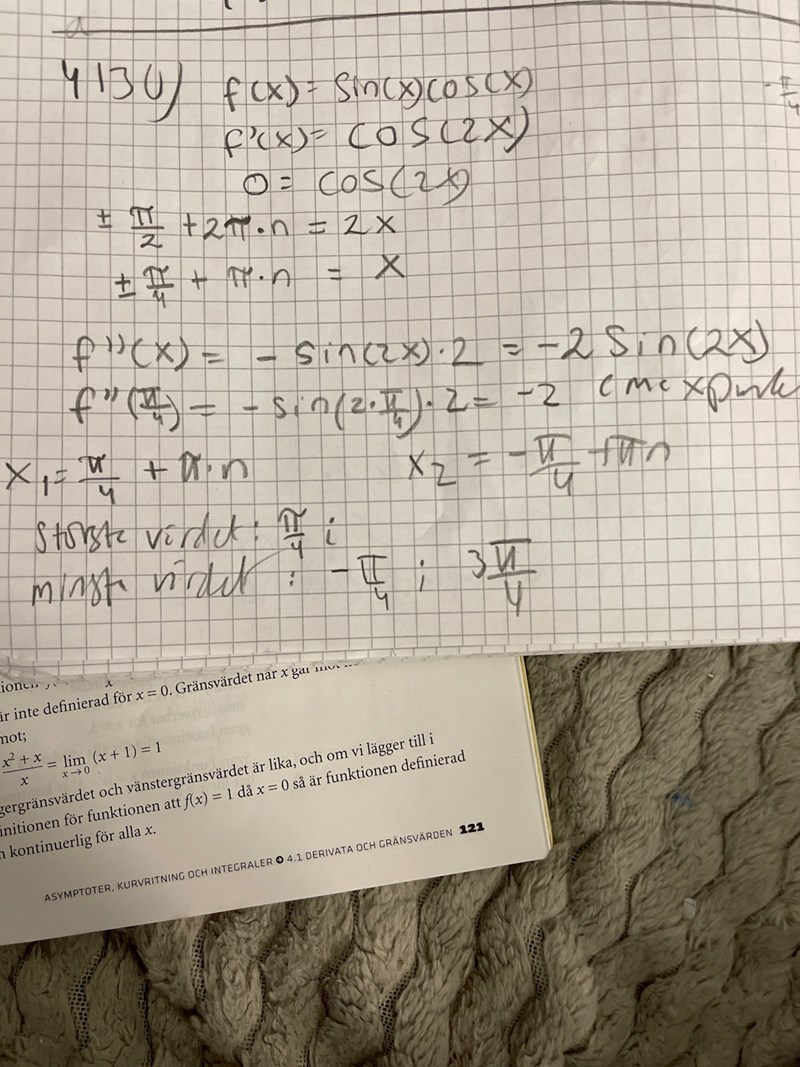 413 c) f(x) = sin(x)cos(x)
f'(x) = cos(2x)
0 = cos(2x)
± π/2 + 2π·n = 2x
± π/4 + π·n = x
f''(x) = - sin(2x)·2 = -2 sin(2x)
f''(π/4) = - sin(2·π/4)·2 = -2
x₁ = π/4 + π·n x₂ = -π/4 + πn
största värdet: π/4 ;
minsta värdet : -π/4 ; 3π/4
-π/4
är inte definierad för x = 0. Gränsvärdet när x går
mot;
x² + x / x = lim x→0 (x + 1) = 1
gergränsvärdet och vänstergränsvärdet är lika, och om vi lägger till i
initionen för funktionen att f(x) = 1 då x = 0 så är funktionen definierad
n kontinuerlig för alla x.
ASYMPTOTER, KURVRITNING OCH INTEGRALER 4.1 DERIVATA OCH GRÄNSVÄRDEN 121